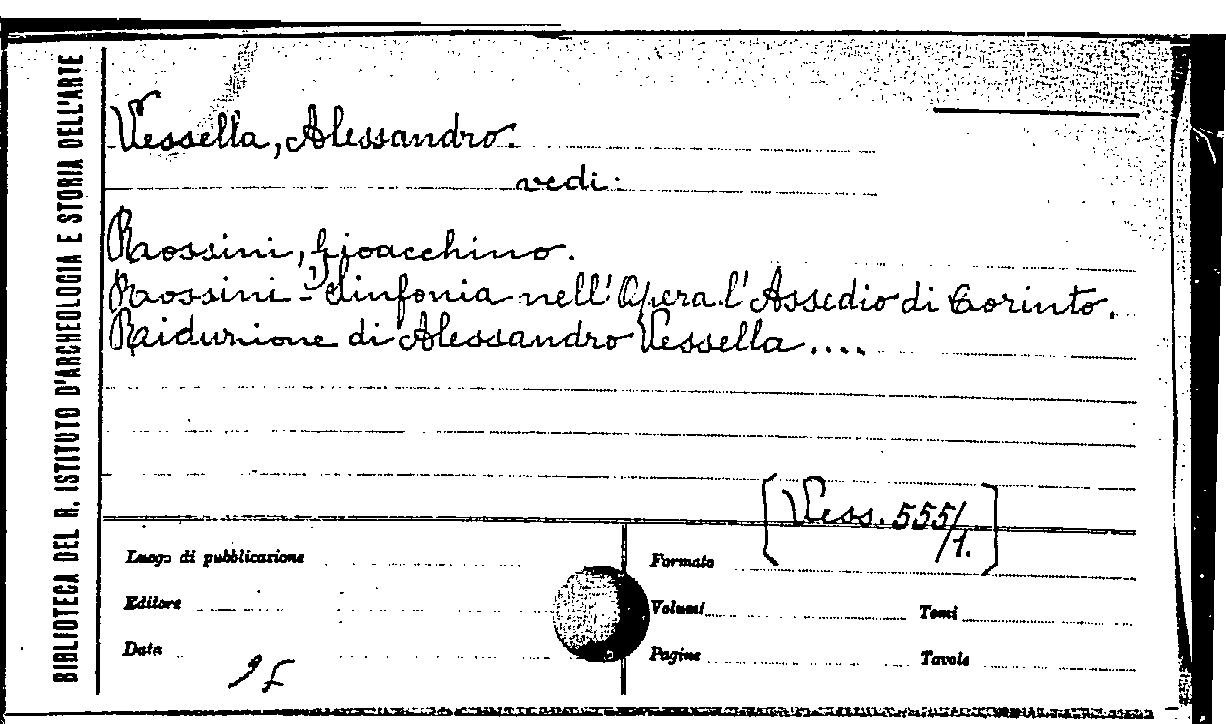 BIBLIOTECA DEL R. ISTITUTO D'ARCHEOLOGIA E STORIA DELL'ARTE
Vessella, Alessandro.
vedi:
Rossini, Gioacchino.
Rossini - Sinfonia nell'Opera l'Assedio di Corinto.
Riduzione di Alessandro Vessella ....
[Vess. 555/1.]
Luogo di pubblicazione
Formato
Editore
Volumi
Tomi
Data
Pagine
Tavole